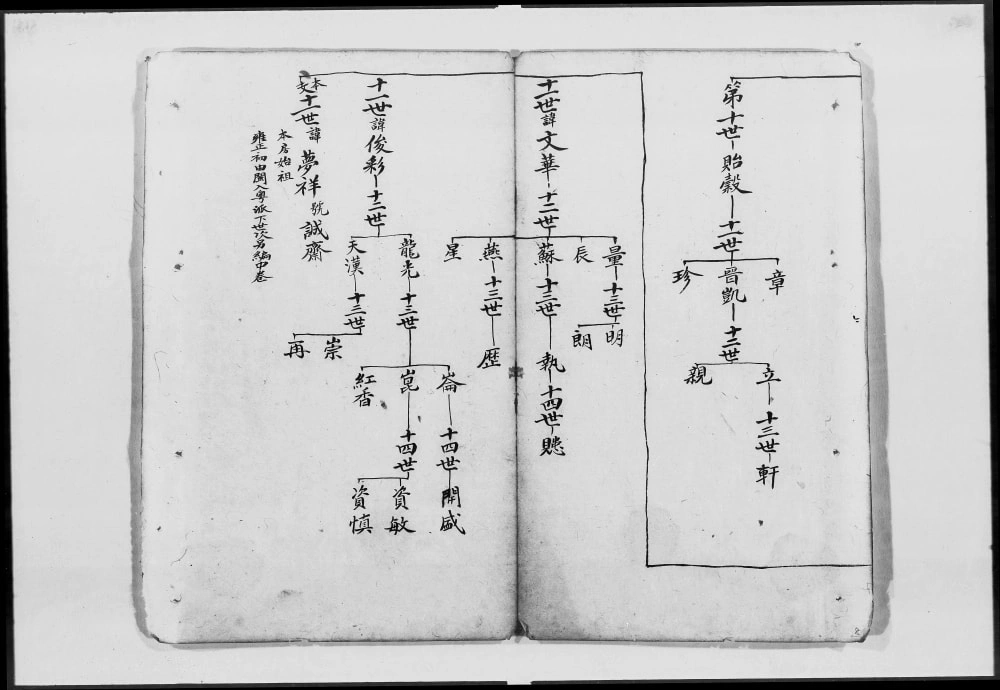 第十世
貽穀
十一世
章
晉凱
珍
十二世
立
親
十三世
軒
十一世諱文華
十二世
量
辰
蘇
燕
星
十三世
明
朗
十三世
執
十四世
十三世
歷
十一世諱俊彩
十二世
龍光
天漢
十三世
崙
崑
紅香
十四世
開盛
十四世
資敏
資慎
十三世
崇
再
本支十一世諱夢祥號誠齋
本房始祖
雍正初由閩入粵派下世次另編中卷